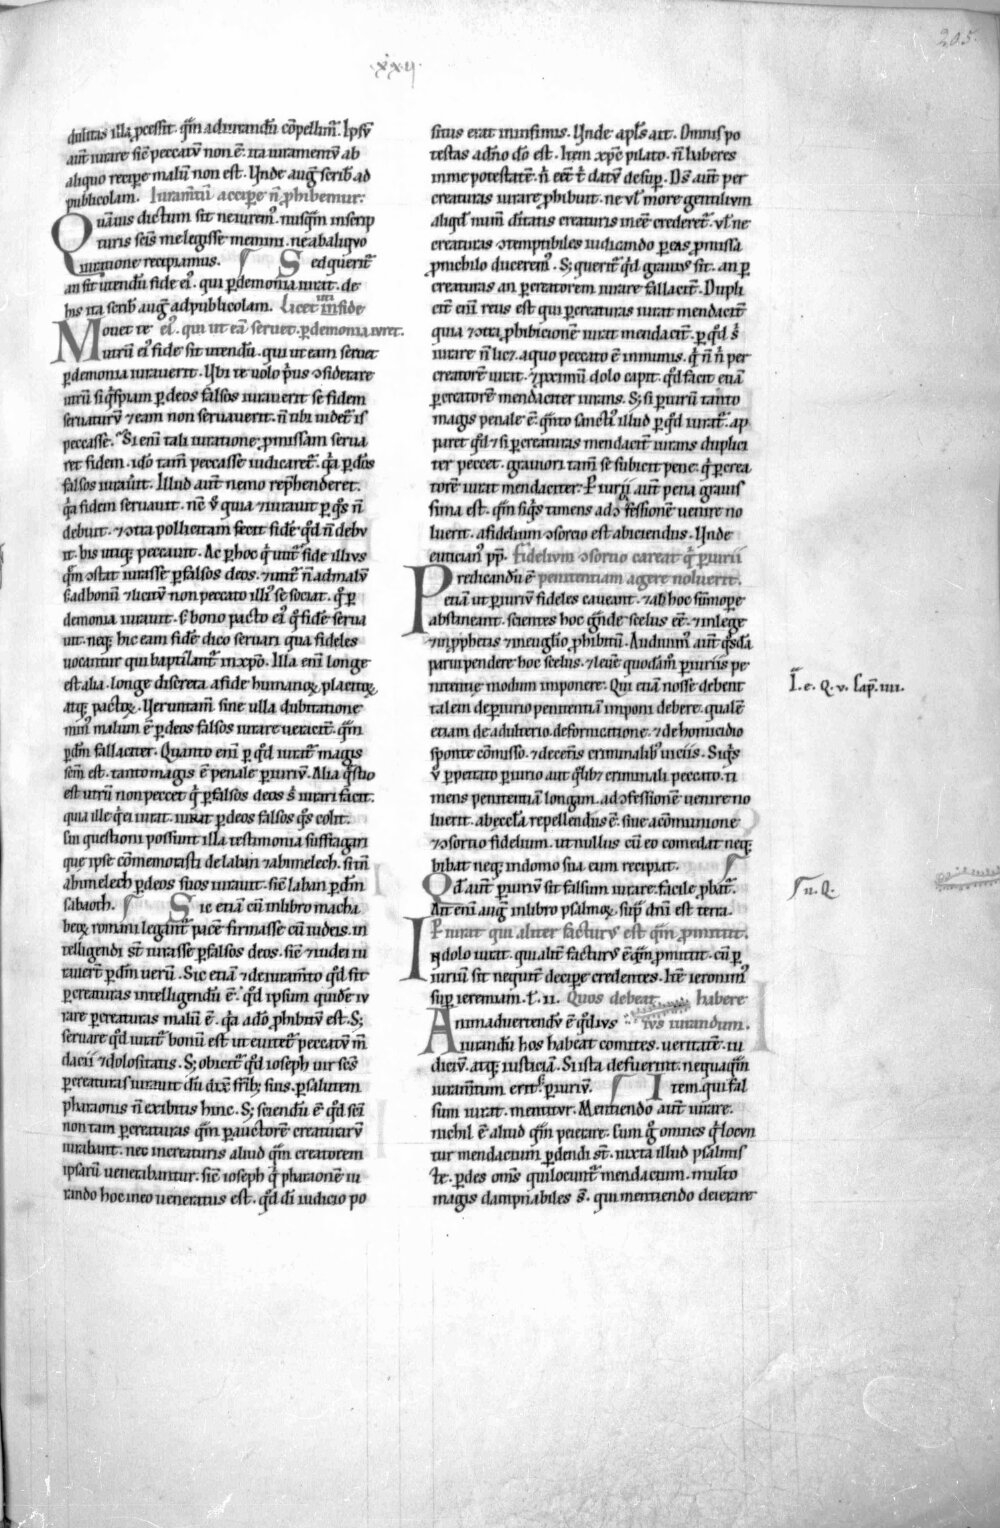 205.
·xxii·
dulitas illa p̱cessit. qm̄ adiurandū cōpellim᷒. Ipsū
aut̄ iurare sic̄ peccatū non ē. ita iuramentū ab
aliquo recipe malū non est. Vnde aug᷒ scrib᷒ ad
publicolam. Iuram̄tū accipe n̄ p̱hibemur.
Quāuis dictum sit ne iurem᷒. nusqm̄ in scrip
turis sc̄is me legisse memini. ne ab aliquo
iurationē recipiamus. Sed querit᷒
an sit utendū fide ei᷒. qui p̱ demonia iurat. de
his ita scrib᷒ aug᷒ ad publicolam. Licet uti in fide
Mouet te ei᷒. qui ut eā seruet. p̱ demonia iuret.
utrū ei᷒ fide sit utendū. qui ut eam seruet
p̱ demonia iurauerit. Vbi te uolo p̱us ↄsiderare
utrū siq̇spiam p̱ deos falsos iurauerit se fidem
seruaturū ⁊ eam non seruauerit. n̄ t̄ uidet᷒ is
peccasse. Si eni tali iuratione p̱missam serua
ret fidem. ido tam̄ peccasse iudicaret᷒. qa p̱ deos
falsos iurauit. Illud aut̄ nemo rep̱henderet.
qa fidem seruauit. nc̄ ū quia ⁊ iurauit p̱ qos n̄
debuit. ⁊ ↄtra pollicitam fecit fidē qd̄ n̄ debu
it. bis utiq; peccauit. Ac p̱hoc q̇ utit᷒ fide illius
qm̄ ↄstat iurasse p̱ falsos deos. ⁊ utit᷒ n̄ ad malū
s; ad bonū ⁊ licitū non peccato illi᷒ se sociat. q̇ p̱
demonia iurauit. s; bono pacto ei᷒ q̇ fidē serua
uit. neq; hic eam fidē dico seruari qua fideles
uocantur qui baptizant᷒ in xp̄o. Illa eni longe
est alia. longe discreta a fide humanoꝝ placitoꝝ
atq; pactoꝝ. Veruntam̄ sine ulla dubitatione
min᷒ malum ē p̱ deos falsos iurare ueracit᷒. qm̄
p̱ dm̄ fallaciter. Quanto eni p̱ qd̄ iurat᷒ magis
sc̄m est. tanto magis ē penale p̱iuriū. Alia qstio
est utrū non peccet q̇ p̱ falsos deos s᷒ iurari facit.
quia ille q̇ ei iurat. iurat p̱ deos falsos qs colit.
In questioni possunt illa testimonia suffragari
que ipse cōmemorasti de laban ⁊ abimelech. si tm̄
abimelech p̱ deos suos iurauit. sic̄ laban p̱ dm̄
sabaoth. Sic etiā cū in libro macha
beoꝝ romani legant᷒ pacē firmasse cū iudeis. in
telligendi st̄ iurasse p̱ falsos deos. sic̄ ⁊ iudei iu
rauert̄ p̱ dm̄ uerū. Sic etiā ⁊ de iuram̄to qd̄ fit
p̱ creaturas intelligendū ē. qd̄ ipsum quidē iu
rare p̱ creaturas malū ē. qa a do p̱hibitū est. S;
seruare qd̄ iurat᷒ bonū est ut euitet᷒ peccatū m̄
dacii ⁊ dolositatis. S; obicit᷒ qd̄ ioseph uir sc̄s
p̱ creaturas iurauit dū dix̄ frīb; suis. p̱ salutem
pharaonis n̄ exibitis hinc. S; sciendū ē qd̄ sc̄i
non tam p̱ creaturas qm̄ p̱ auctorē creaturarū
iurabant. nec in creaturis aliud qm̄ creatorem
ipsarū uenerabantur. sic̄ ioseph q̇ pharaonē iu
rando hoc in eo ueneratus est. qd̄ di iudicio po
situs erat in infimis. Vnde apl̄s ait. Omnis po
testas a dn̄o do est. Item xp̄c pilato. n̄ haberes
in me potestatē. n̄ eēt t̄ datū desup. Ds̄ aut̄ per
creaturas iurare p̱hibuit. ne ul̄ more gentilium
aliqd̄ num̄ diuitatis creaturis inēē crederet᷒. ul̄ ne
creaturas ↄtemptibiles iudicando p̱ eas p̱missa
p̱ nichilo ducerem᷒. S; querit᷒ qd̄ grauius sit. an p̱
creaturas an p̱ creatorem iurare fallacit᷒. Dupli
cit᷒ eni reus est qui p̱ creaturas iurat mendacit᷒
quia ⁊ ↄtra p̱hibicionē iurat mendacit᷒ p̱ qd̄ s᷒
iurare n̄ licꝫ. a quo peccato ē inmunis. q̇ n̄ n̄ per
creatorē iurat. ⁊ p̱ximū dolo capit. qd̄ facit etiā
p̱ creatorē mendaciter iurans. S; si p̱iuriū tanto
magis penale ē. qnto sancti᷒ illud p̱ qd̄ iurat᷒. ap
paret qd̄ ⁊ si p̱ creaturas mendacit᷒ iurans duplici
ter peccet. grauiori tam̄ se subicit pene. q̇ p̱ crea
torē iurat mendaciter. P̱iurii aut̄ pena grauis
sima est. qm̄ siq̇s timens ad ↄfessionē uenire no
luerit. a fidelium ↄsorcio est abiciendus. Vnde
euticians᷒ pp̄. Fidelium ↄsorcio careat q̇ p̱iurii
Predicandū ē penitentiam agere noluerit.
etiā ut p̱iuriū fideles caueant. ⁊ ab hoc sūmope
abstineant. scientes hoc gnde scelus eē. ⁊ in lege
⁊ in p̱phetis ⁊ in euglio p̱hibitū. Audiuim᷒ aut̄ qsdā
parui pendere hoc scelus. ⁊ leuē quodam᷒ p̱iuriis pe
nitentie modum imponere. Qui etiā nosse debent
talem de p̱iurio penitentiā imponi debere. qualē
etiam de adulterio. de fornicatione. ⁊ de homicidio
sponte cōmisso. ⁊ de cet̄is criminalib; uiciis. Siq̇s
ū p̱petrato p̱iurio aut qlibꝫ criminali peccato. ti
mens penitentiā longam. ad ↄfessionē uenire no
luerit. ab eccl̄a repellendus ē. siue a cōmunione
⁊ ↄsortio fidelium. ut nullus cū eo comedat neq;
bibat neq; in domo sua eum recipiat.
Qd̄ aut̄ p̱iuriū sit falsum iurare. facile p̱bat᷒.
Ait eni aug᷒ in libro psalmoꝝ. sup̱ dn̄i est terra.
P̱iurat qui aliter facturus est qm̄ p̱mittit.
In dolo iurat. qui alit᷒ facturus ē qm̄ p̱mittit. cū p̱
iuriū sit nequit᷒ decipe credentes. Itē ieronim᷒
sup̱ ieremiam. l. ii. Quos debeat habere
Animaduertendū ē qd̄ ius ius iurandum.
iurandū hos habeat comites. ueritatē. iu
diciū. atq; iusticiā. Si ista defuerint. nequaqm̄
iuram̄tum erit. s; p̱iuriū. Item. qui fal
sum iurat. mentitur. Mentiendo aut̄ iurare.
nichil ē aliud qm̄ peierare. Cum g᷒ omnes q̇ locun
tur mendacium p̱dendi st̄. iuxta illud psalmis
te. p̱des om̄s qui locunt᷒ mendacium. multo
magis dampnabiles s̄. qui mentiendo deierare
I. e. Q. v. cap̄. iiii.
ii. Q.